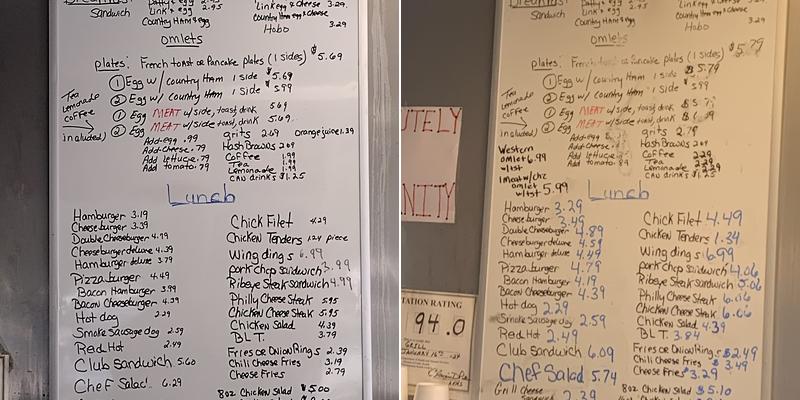 Breakfast
Sandwich
Link + egg 2.95
Country Ham & egg
Link egg & cheese 3.29
Country Ham egg & cheese
Hobo 3.29
omlets
plates: French toast or Pancake plates (1 sides) $5.69
① Egg w/ country Ham 1 side $5.69
② Egg w/ Country Ham 1 side $5.99
① Egg MEAT w/side, toast, drink 5.69
② Egg MEAT w/side, toast, drink 5.69
Tea
Lemonade
Coffee
included)
Add-egg .99
Add-cheese .79
Add lettuce .79
Add tomato .79
grits 2.69
Hash Browns 2.09
Coffee 1.99
Tea 1.99
Lemonade 1.99
CAN drinks $1.25
Orange juice 1.39
Lunch
Hamburger 3.19
Cheeseburger 3.39
Double Cheeseburger 4.79
Cheeseburger deluxe 4.39
Hamburger deluxe 3.79
Pizza burger 4.49
Bacon Hamburger 3.99
Bacon Cheeseburger 4.29
Hot dog 2.29
Smoke Sausage dog 2.59
Red Hot 2.49
Club Sandwich 5.60
Chef Salad 6.29
Chick Filet 4.29
Chicken Tenders 1.24 piece
Wing dings 6.99
pork chop sandwich 3.99
Ribeye Steak sandwich 4.99
Philly Cheese Steak 5.95
Chicken Cheese Steak 5.95
Chicken Salad 4.39
BLT. 3.79
Fries or Onion Rings 2.39
Chili Cheese Fries 3.19
Cheese Fries 2.79
8oz Chicken Salad $5.00
Sandwich
Country Ham & egg
Hobo 3.29
omlets
plates: French toast or Pancake plates (1 sides) $5.79
① Egg w/ country Ham 1 side $5.79
② Egg w/ Country Ham 1 side 5.99
① Egg MEAT w/side, toast, drink
② Egg MEAT w/side, toast, drink
Tea
Lemonade
Coffee
included)
Add-egg
Add-cheese
Add lettuce
Add tomato .89
grits 2.79
Hash Browns 2.09
Coffee 2.29
Tea 2.29
Lemonade 2.29
CAN drinks $1.25
Western
omlet 6.99
w/tst
1 Meat w/chz
omlet
w/tst 5.99
Lunch
Hamburger 3.29
Cheeseburger 3.49
Double Cheeseburger 4.89
Cheeseburger deluxe 4.59
Hamburger deluxe 4.49
Pizza burger 4.79
Bacon Hamburger 4.19
Bacon Cheeseburger 4.39
Hot dog 2.29
Smoke Sausage dog 2.59
Red Hot 2.49
Club Sandwich 6.09
Chef Salad 5.74
Grill Cheese
Sandwich 2.39
Chick Filet 4.49
Chicken Tenders 1.34
Wing dings 6.99
pork chop sandwich 4.06
Ribeye Steak sandwich 5.06
Philly Cheese Steak 6.06
Chicken Cheese Steak 6.06
Chicken Salad 4.39
BLT. 3.84
Fries or Onion Rings $2.49
Chili Cheese Fries $3.49
Cheese Fries $3.29
8oz Chicken Salad $5.10
UTELY
NITY
TATION RATING
94.0
GRILL